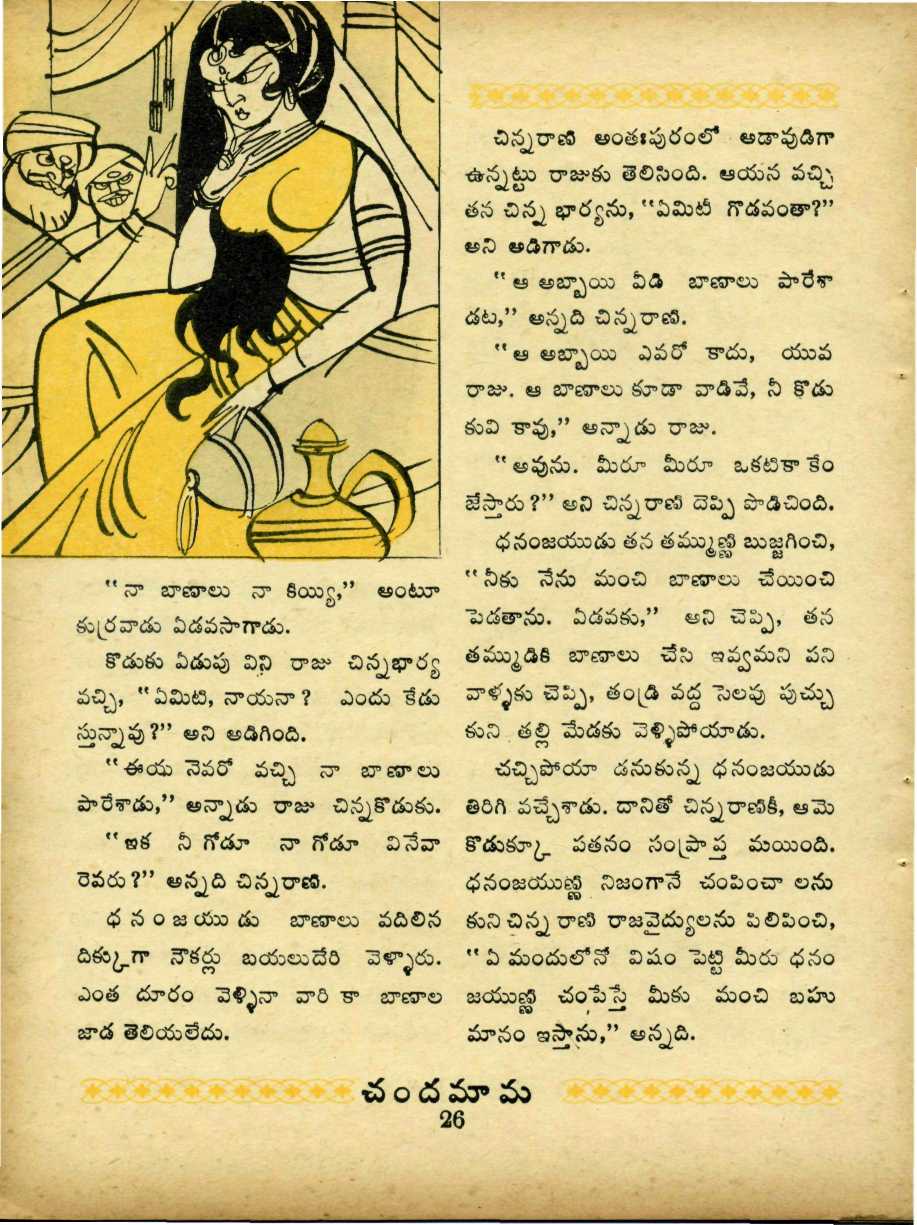 ‘‘నా బాణాలు నా కియ్యి,’’ అంటూ
కుర్రవాడు ఏడవసాగాడు.
కొడుకు ఏడుపు విని రాజు చిన్నభార్య
వచ్చి, ‘‘ఏమిటి, నాయనా? ఎందు కేడు
స్తున్నావు?’’ అని అడిగింది.
‘‘ఈయ నెవరో వచ్చి నా బాణాలు
పారేశాడు,’’ అన్నాడు రాజు చిన్నకొడుకు.
‘‘ఇక నీ గోడూ నా గోడూ వినేవా
రెవరు?’’ అన్నది చిన్నరాణి.
ధనంజయుడు బాణాలు వదిలిన
దిక్కుగా నౌకర్లు బయలుదేరి వెళ్ళారు.
ఎంత దూరం వెళ్ళినా వారి కా బాణాల
జాడ తెలియలేదు.
చిన్నరాణి అంతఃపురంలో అడావుడిగా
ఉన్నట్టు రాజుకు తెలిసింది. ఆయన వచ్చి
తన చిన్న భార్యను, ‘‘ఏమిటీ గొడవంతా?’’
అని అడిగాడు.
‘‘ఆ అబ్బాయి వీడి బాణాలు పారేశా
డట,’’ అన్నది చిన్నరాణి.
‘‘ఆ అబ్బాయి ఎవరో కాదు, యువ
రాజు. ఆ బాణాలు కూడా వాడివే, నీ కొడు
కువి కావు,’’ అన్నాడు రాజు.
‘‘అవును. మీరూ మీరూ ఒకటికా కేం
జేస్తారు?’’ అని చిన్నరాణి దెప్పి పొడిచింది.
ధనంజయుడు తన తమ్ముణ్ణి బుజ్జగించి,
‘‘నీకు నేను మంచి బాణాలు చేయించి
పెడతాను. ఏడవకు,’’ అని చెప్పి, తన
తమ్ముడికి బాణాలు చేసి ఇవ్వమని పని
వాళ్ళకు చెప్పి, తండ్రి వద్ద సెలవు పుచ్చు
కుని తల్లి మేడకు వెళ్ళిపోయాడు.
చచ్చిపోయా డనుకున్న ధనంజయుడు
తిరిగి వచ్చేశాడు. దానితో చిన్నరాణికీ, ఆమె
కొడుక్కూ పతనం సంప్రాప్త మయింది.
ధనంజయుణ్ణి నిజంగానే చంపించా లను
కుని చిన్న రాణి రాజవైద్యులను పిలిపించి,
‘‘ఏ మందులోనో విషం పెట్టి మీరు ధనం
జయుణ్ణి చంపేస్తే మీకు మంచి బహు
మానం ఇస్తాను,’’ అన్నది.
చందమామ
26